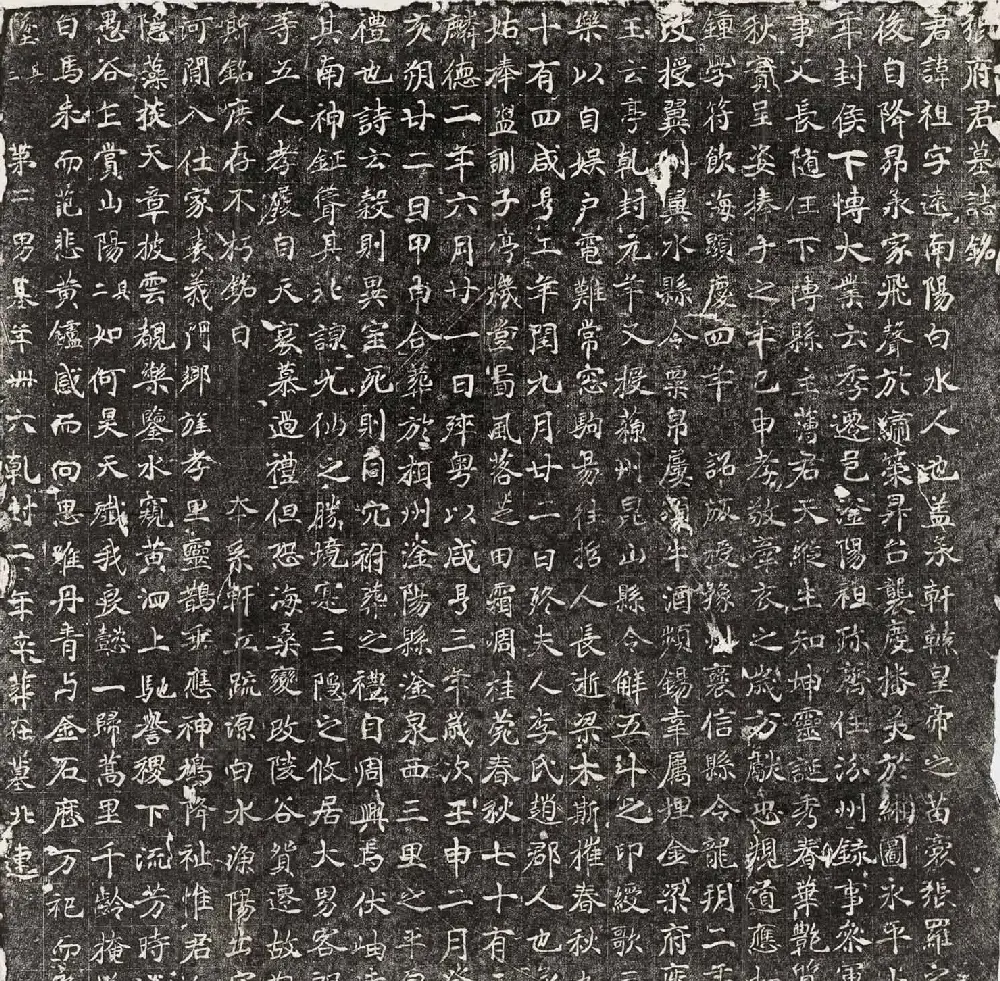 府君墓誌銘
君諱祖字遠南陽白水人也蓋承軒轅皇帝之苗裔張羅之
後自降昴永家飛聲於繡築昇台襲慶播美於緗圖永平
年封侯下愽大業云季遷邑滏陽祖弥齊任汾州錄事叅軍
事父長隨任下愽縣主薄君天縱生知坤靈誕秀眷華艷質
狄賓呈姿捧手之年已申孝敬棠衣之歲方獻忠規道應
鍾學符飲海顯慶四年 詔版授豫州襄信縣令龍朔二年
改授翼州翼水縣令粟帛屢須牛酒頻錫韋屬埋金梁府
玉云亭乹封元年又授蘇州昆山縣令解五斗之印綬歌
樂以自娱户電難常窓駒易往哲人長逝梁木斯摧春秋九
十有四咸亨二年閏九月廿二日終夫人李氏趙郡人也
姑奉盥訓子停機萱蜀風落芝田霜凋桂菀春秋七十有
麟德二年六月廿一日殯粤以咸亨三年歲次壬申二月癸
亥朔廿二日甲申合葬於相州滏陽縣滏泉西三里之平
禮也詩云穀則異室死則同穴祔葬之禮自周興焉伏岫
其南神鉦聳其北諒九仙之勝境寔三隱之攸居大男客
等五人孝發自天哀慕過禮但恐海桑變改陵谷貿遷故
斯銘庶存不朽銘曰 本系軒丘疏源白水漁陽出
河間入仕家表義門鄉旌孝里靈鵲乗應神鳩降祉惟君
隱藻掞天章披雲覩樂鑒水窺黄泗上馳譽稷下流芳時
愚谷上賞山陽其二如何昊天殲我良懿一歸蒿里千齡掩
白馬来而苑悲黄鑪感而向思雖丹青与金石庶万祀而
其三 第二男基年卅六乹封二年卒葬在墓北連